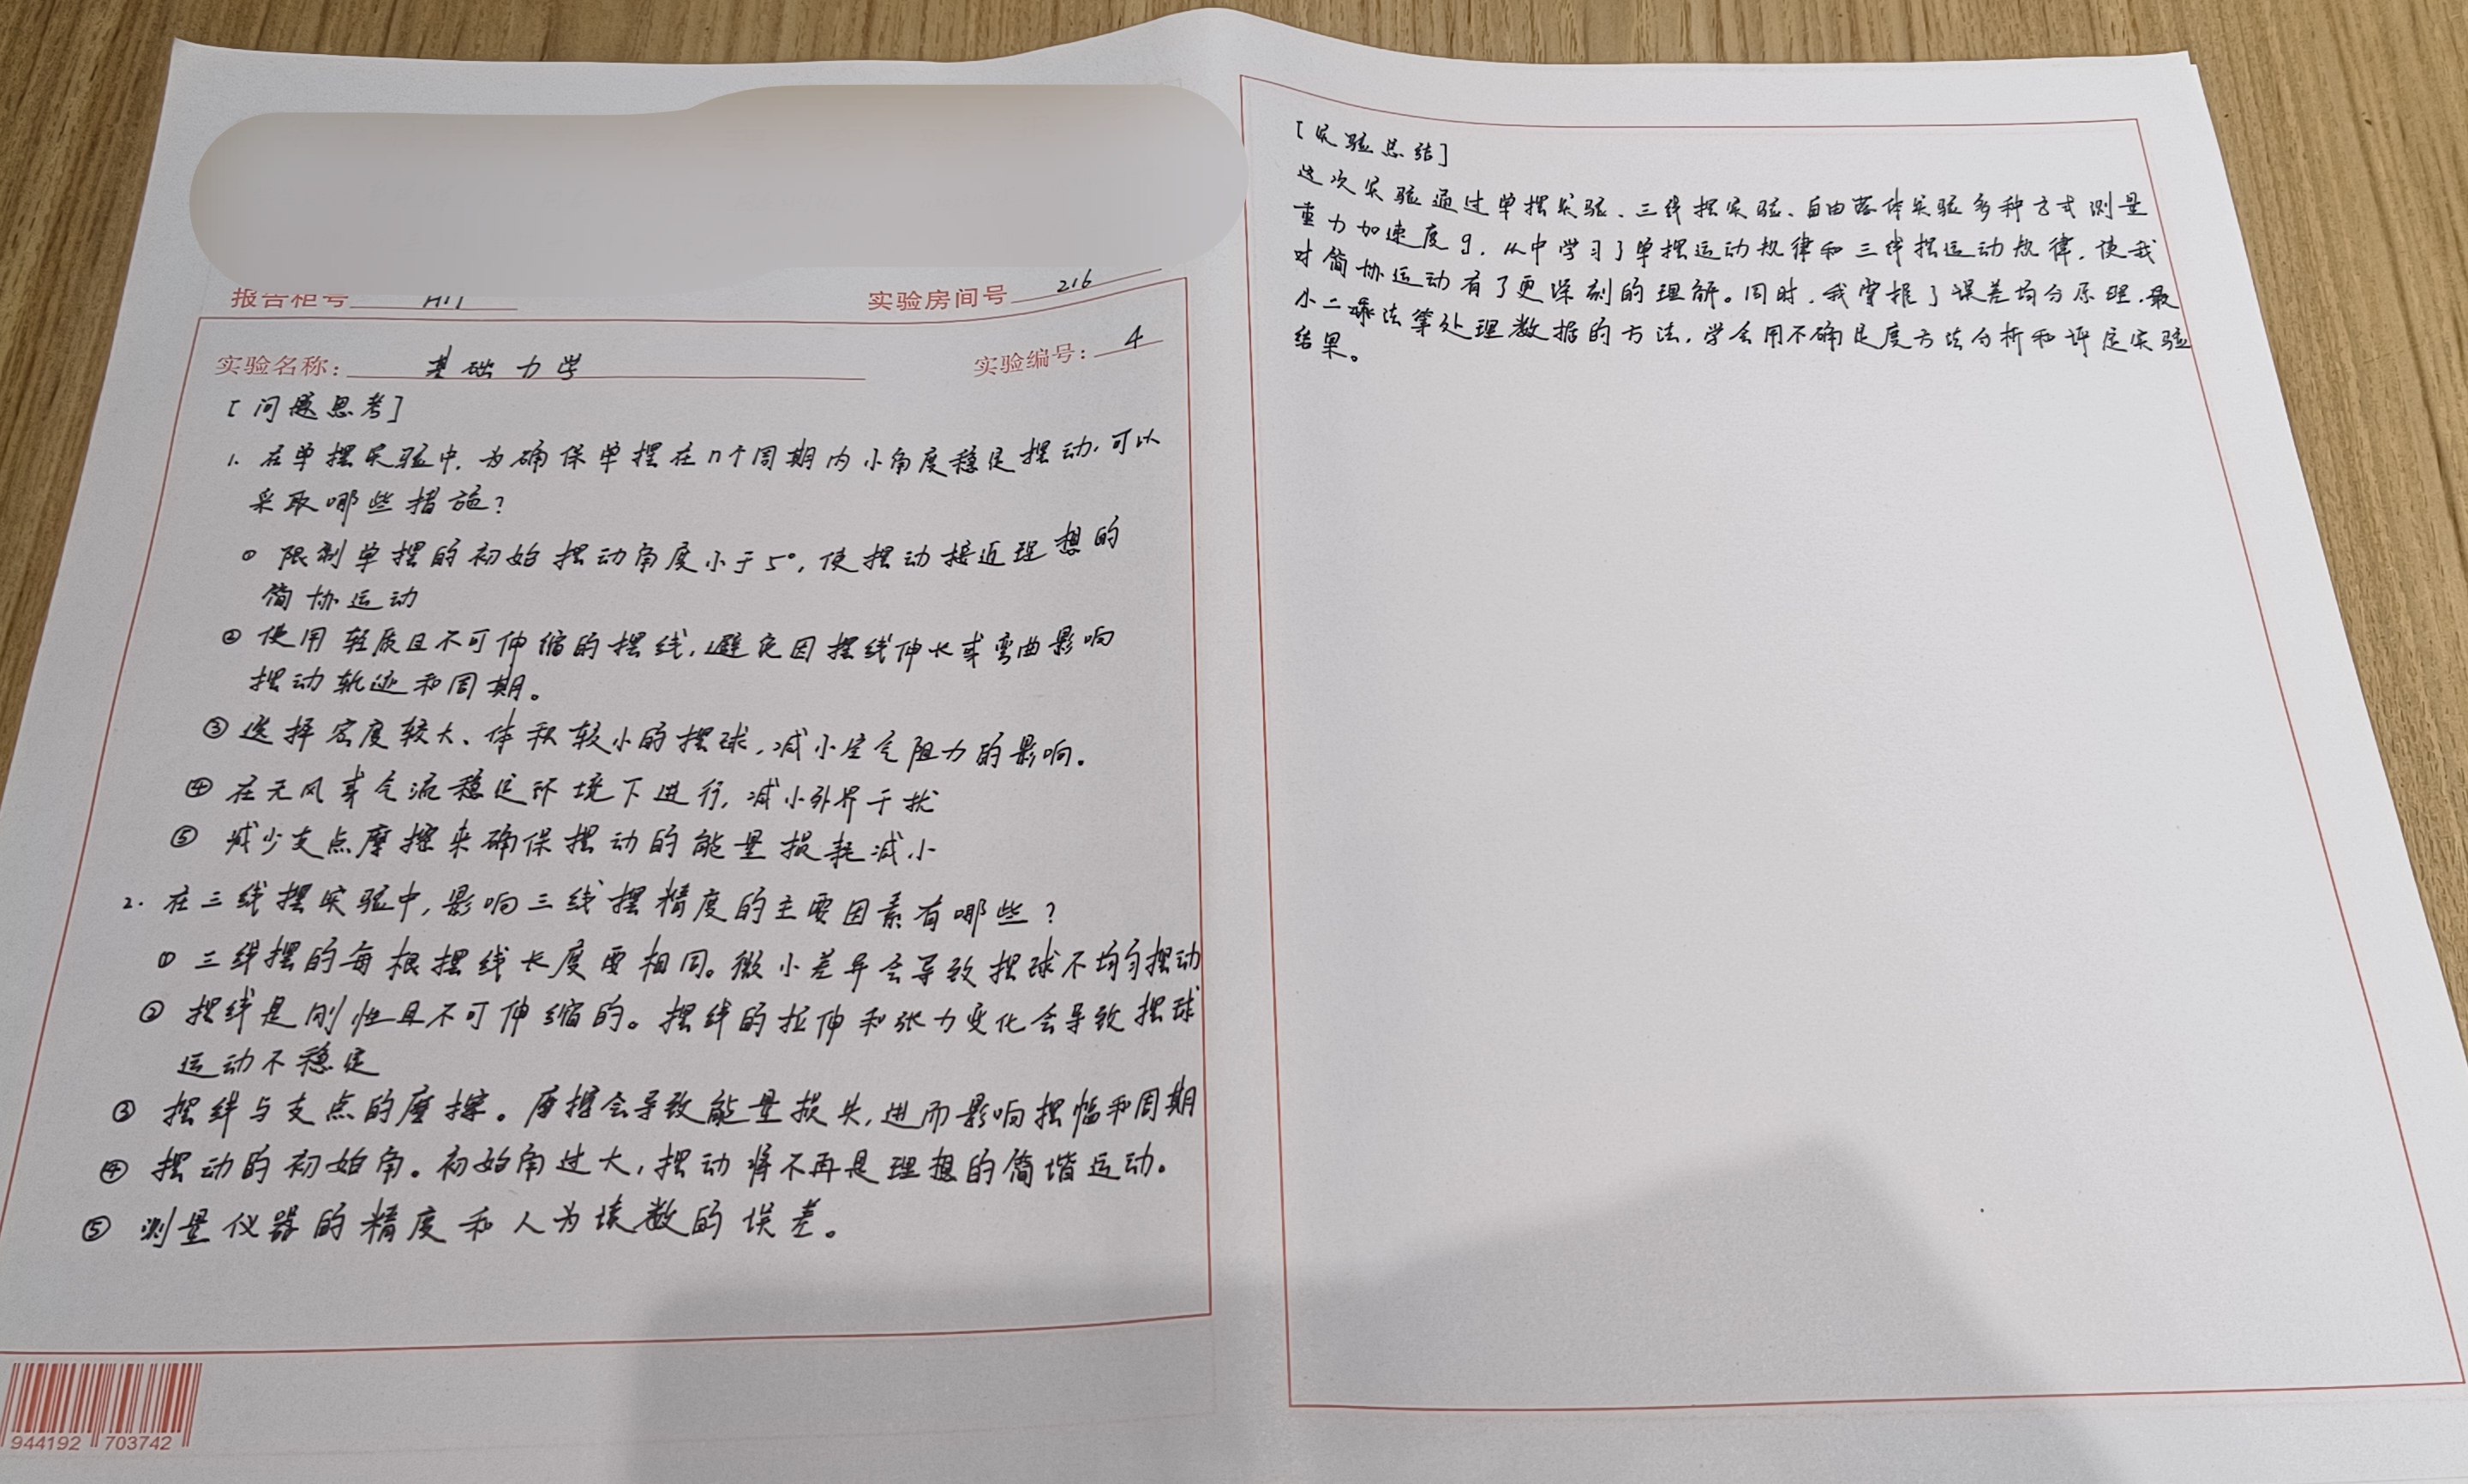 报告柜号
实验房间号 216
实验名称: 基础力学
实验编号: 4
[问题思考]
1. 在单摆实验中,为确保单摆在n个周期内小角度稳定摆动,可以
采取哪些措施?
① 限制单摆的初始摆动角度小于5°,使摆动接近理想的
简协运动
② 使用轻质且不可伸缩的摆线,避免因摆线伸长或弯曲影响
摆动轨迹和周期。
③ 选择密度较大、体积较小的摆球,减小空气阻力的影响。
④ 在无风或气流稳定环境下进行,减小外界干扰
⑤ 减少支点摩擦来确保摆动的能量损耗减小
2. 在三线摆实验中,影响三线摆精度的主要因素有哪些?
① 三线摆的每根摆线长度要相同。微小差异会导致摆球不均匀摆动
② 摆线是刚性且不可伸缩的。摆线的拉伸和张力变化会导致摆球
运动不稳定
③ 摆线与支点的摩擦。摩擦会导致能量损失,进而影响摆幅和周期
④ 摆动的初始角。初始角过大,摆动将不再是理想的简谐运动。
⑤ 测量仪器的精度和人为读数的误差。
944192 703742
[实验总结]
这次实验通过单摆实验、三线摆实验、自由落体实验多种方式测量
重力加速度g,从中学习了单摆运动规律和三线摆运动规律,使我
对简协运动有了更深刻的理解。同时,我掌握了误差均分原理、最
小二乘法等处理数据的方法,学会用不确定度方法分析和评定实验
结果。